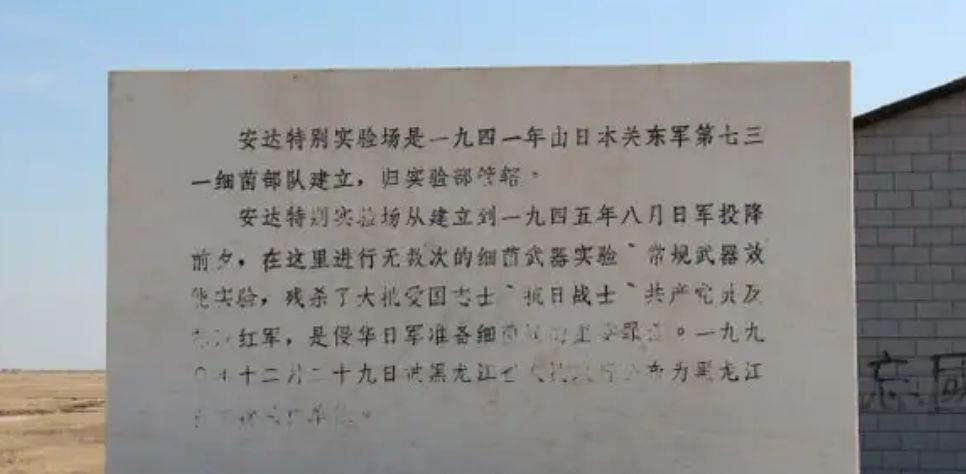 安达特别实验场是一九四一年由日本关东军第七三
一细菌部队建立，归实验部管辖。
安达特别实验场从建立到一九四五年八月日军投降
前夕，在这里进行无数次的细菌武器实验、常规武器效
能实验，残杀了大批爱国志士、抗日战士、共产党员及
红军，是侵华日军准备细菌 。一九九
〇年十二月二十九日被黑龙江 为黑龙江
忘國